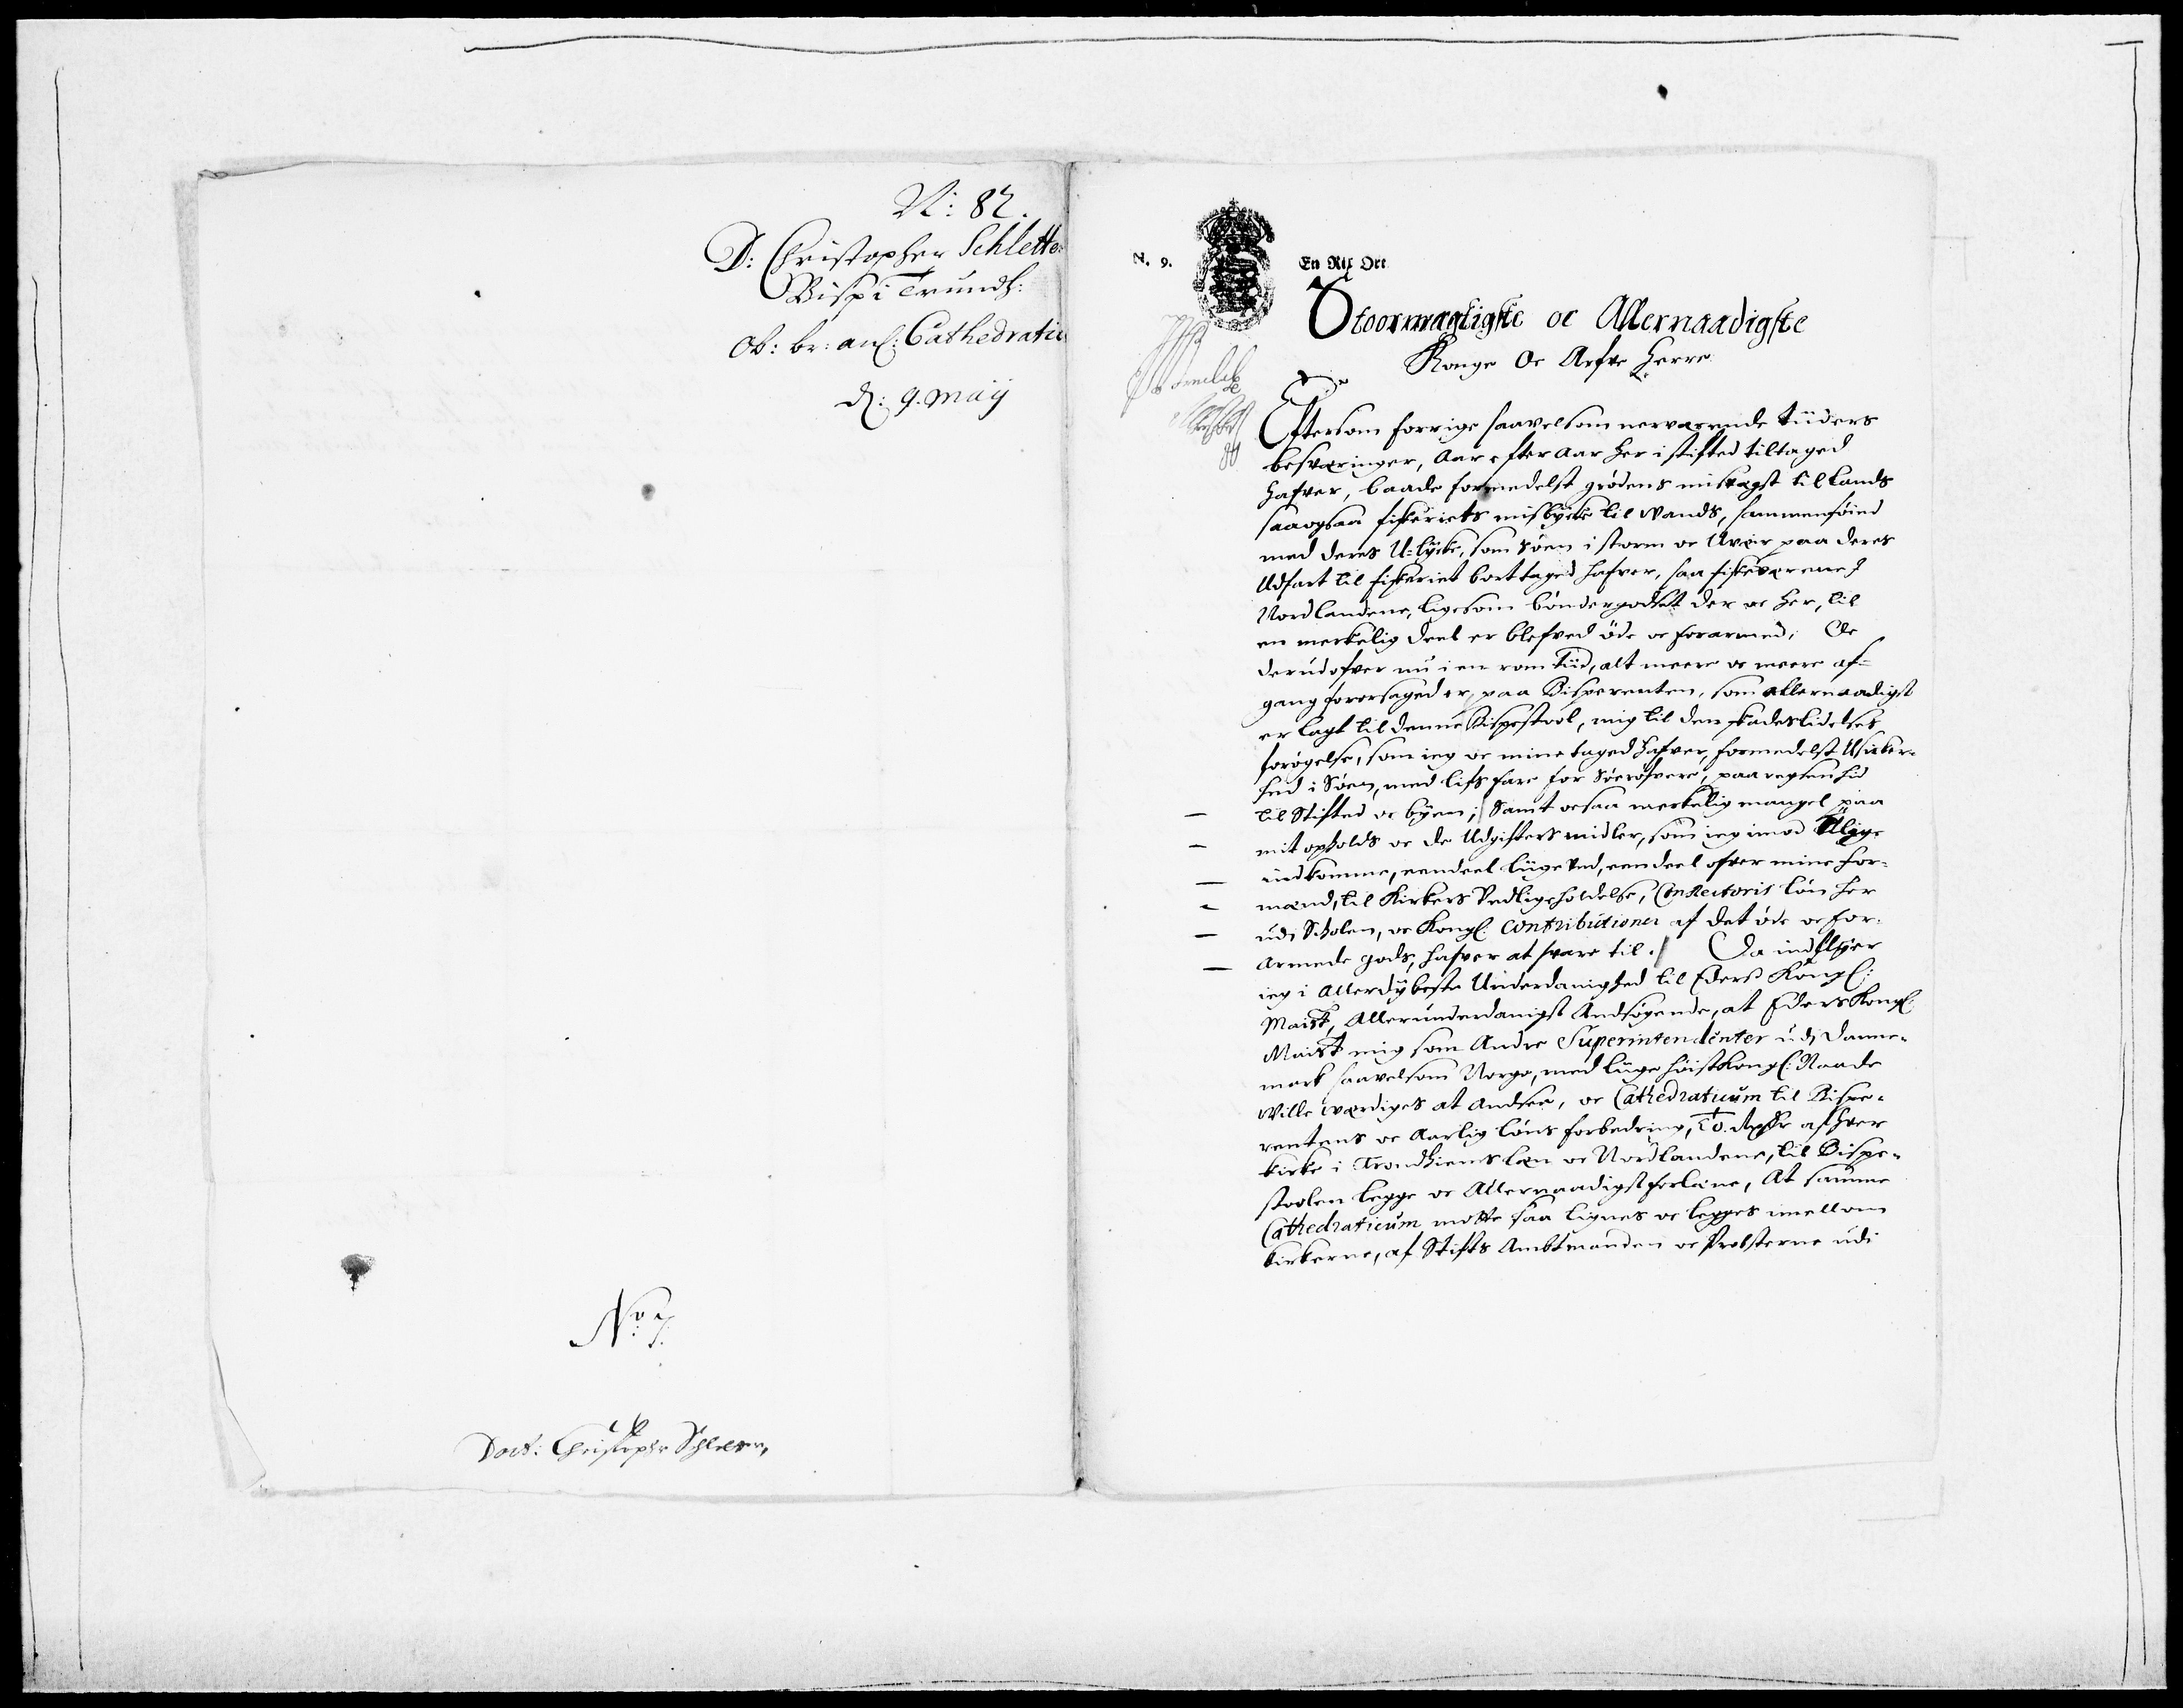 N: 82.
D: Christopher Schlette
Bisp i Trundh:
ob: br: anl: Cathedratic
d: 9. Maij
No 7.
Doct: Christopher Schletter,
N. 9.
En Rix Ort
Stoormægtigste oc Allernaadigste
Konge Oc Arfve Herre
Eftersom forrige saavelsom nerværende tiiders
besværinger, Aar efter Aar her i stifted tiltaged
hafver, baade formedelst grødens misvæxt til Lands
saaogsaa fiskeriets mislycke til Vands, sammenføied
med deres U-lycke, som Søen i storm oc Uveir paa deres
Udfart til fiskeriet borttaged hafver, saa fiskeværene i
Nordlandene, ligesom bøndergodset der oc her, til
en merkelig deel er blefved øde oc forarmed; Oc
derudofver nu i en rom tiid, alt meere oc meere af-
gang foraarsaged er, paa Bisperenten, som allernaadigst
er lagt til denne Bispestool, mig til den skadeslidelses
forøgelse, som ieg oc mine taged hafver, formedelst Usicker-
hed i Søen, med lifs fare for Søerøfvere, paa reysen hid
til Stifted oc byen; Samt ocsaa merkelig mangel paa
mit opholds oc de Udgifters midler, som ieg imod Ulige
indkomme, eendeel liige ved, eendeel ofver mine For-
mænd, til Kirkers Vedligeholdelse, ConRectoris løn her
udi Scholen, oc Kongl: Contributioner af det øde oc for-
Armede gods, hafver at svare til. Da indflyer
ieg i Allerdybeste Underdanighed til Eders Kongl:
Maist, Allerunderdanigst Andsøgende, at Eders Kongl:
Maist mig som Andre Superintendenter udi Danne-
mark saavelsom Norge, med liige høist Kongl: Naade
Wille værdiges at Andsee, oc Cathedraticum til Bispe-
rentens oc Aarlig løns forbedring, To. Rixdr af hver
kirke i Trondhiems læn oc Nordlandene, til Bispe-
stoolen legge oc Allernaadigst forlæne, At samme
Cathedraticum motte saa lignes oc legges imellom
kirkerne, af Stifts Ambtmanden oc Probsterne udi